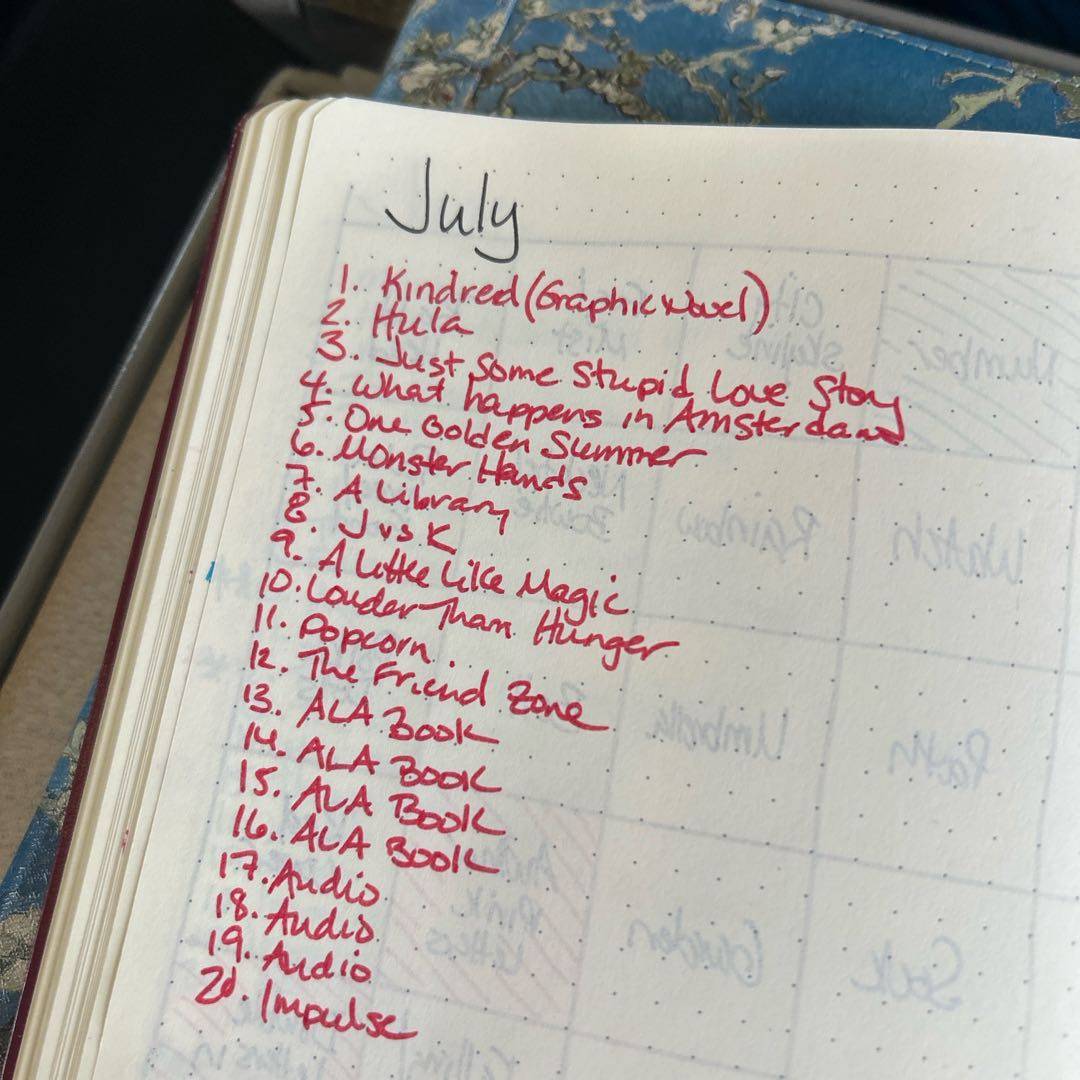 July
1. Kindred (Graphic Novel)
2. Hula
3. Just Some Stupid Love Story
4. What happens in Amsterdam
5. One Golden Summer
6. Monster Hands
7. A Library
8. J vs K
9. A Little Like Magic
10. Louder Than Hunger
11. Popcorn
12. The Friend Zone
13. ALA Book
14. ALA Book
15. ALA Book
16. ALA Book
17. Audio
18. Audio
19. Audio
20. Impulse